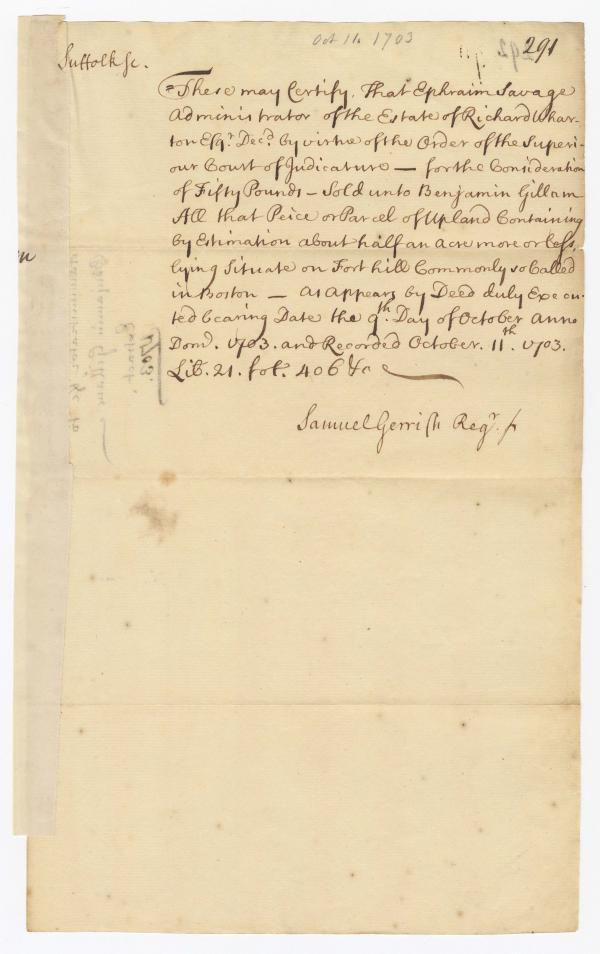 Oct 11. 1703
291
292
Suffolk Sc.
These may Certify, That Ephraim Savage
Administrator of the Estate of Richard Whar-
ton Esqr. Decd. by virtue of the Order of the Superi-
our Court of Judicature — for the Consideration
of Fifty Pounds — Sold unto Benjamin Gillam
All that Peice or Parcel of Upland Containing
by Estimation about half an acre more or less,
lying Situate on Fort hill Commonly so Called
in Boston — As Appears by Deed duly Execu-
ted bearing Date the 9th. Day of October Anno
Domi. 1703. and Recorded October. 11th. 1703.
Lib. 21. fol. 406 &c
Samuel Gerrish Regr.
1703.
Extract
Benjamin Gillam